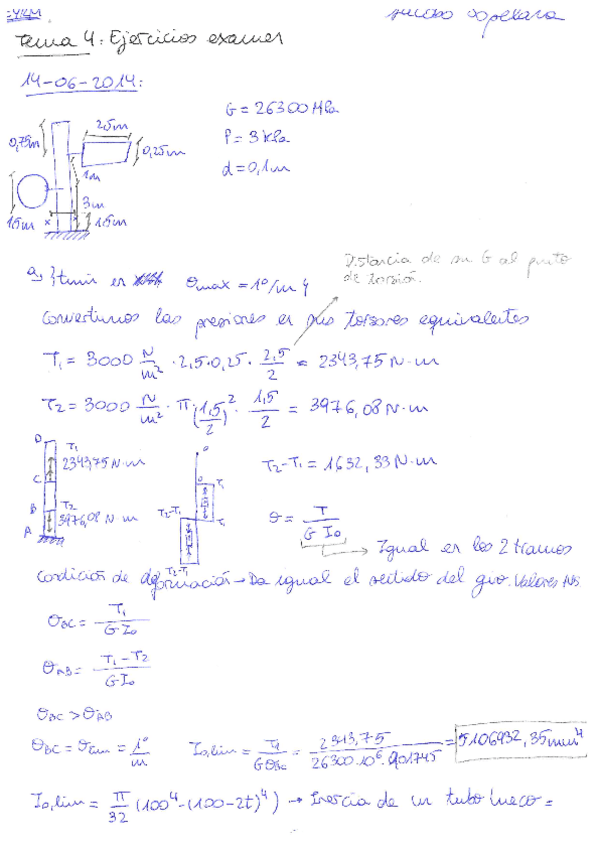 Tema 4: Ejercicios examen
14-06-2014:
G = 26300 MPa
P = 3 kPa
d = 0,1m
2,5m
0,75m
0,25m
1m
3m
1,5m
1,5m
Distancia de su G al punto
de torsión.
a) tmin en θmax = 1°/m
Convertimos las presiones en sus torsores equivalentes
T1 = 3000 N/m² · 2,5·0,25 · 2,5/2 = 2343,75 N·m
T2 = 3000 N/m² · π · (1,5/2)² · 1,5/2 = 3976,08 N·m
D
T1
2343,75 N·m
C
B
T2
3976,08 N·m
A
T2-T1
T1
T2-T1
T2-T1 = 1632,33 N·m
θ = T/(G I0)
Igual en los 2 tramos
Condición de deformación → Da igual el sentido del giro. Valores Abs.
θBC = T1/(G I0)
θAB = (T1-T2)/(G I0)
θBC > θAB
θBC = θlim = 1°/m
I0,lim = T1/(G θBC) = 2343,75/(26300·10⁶·0,01745) = 5106932,35mm⁴
I0,lim = π/32 (100⁴-(100-2t)⁴) → Inercia de un tubo hueco =